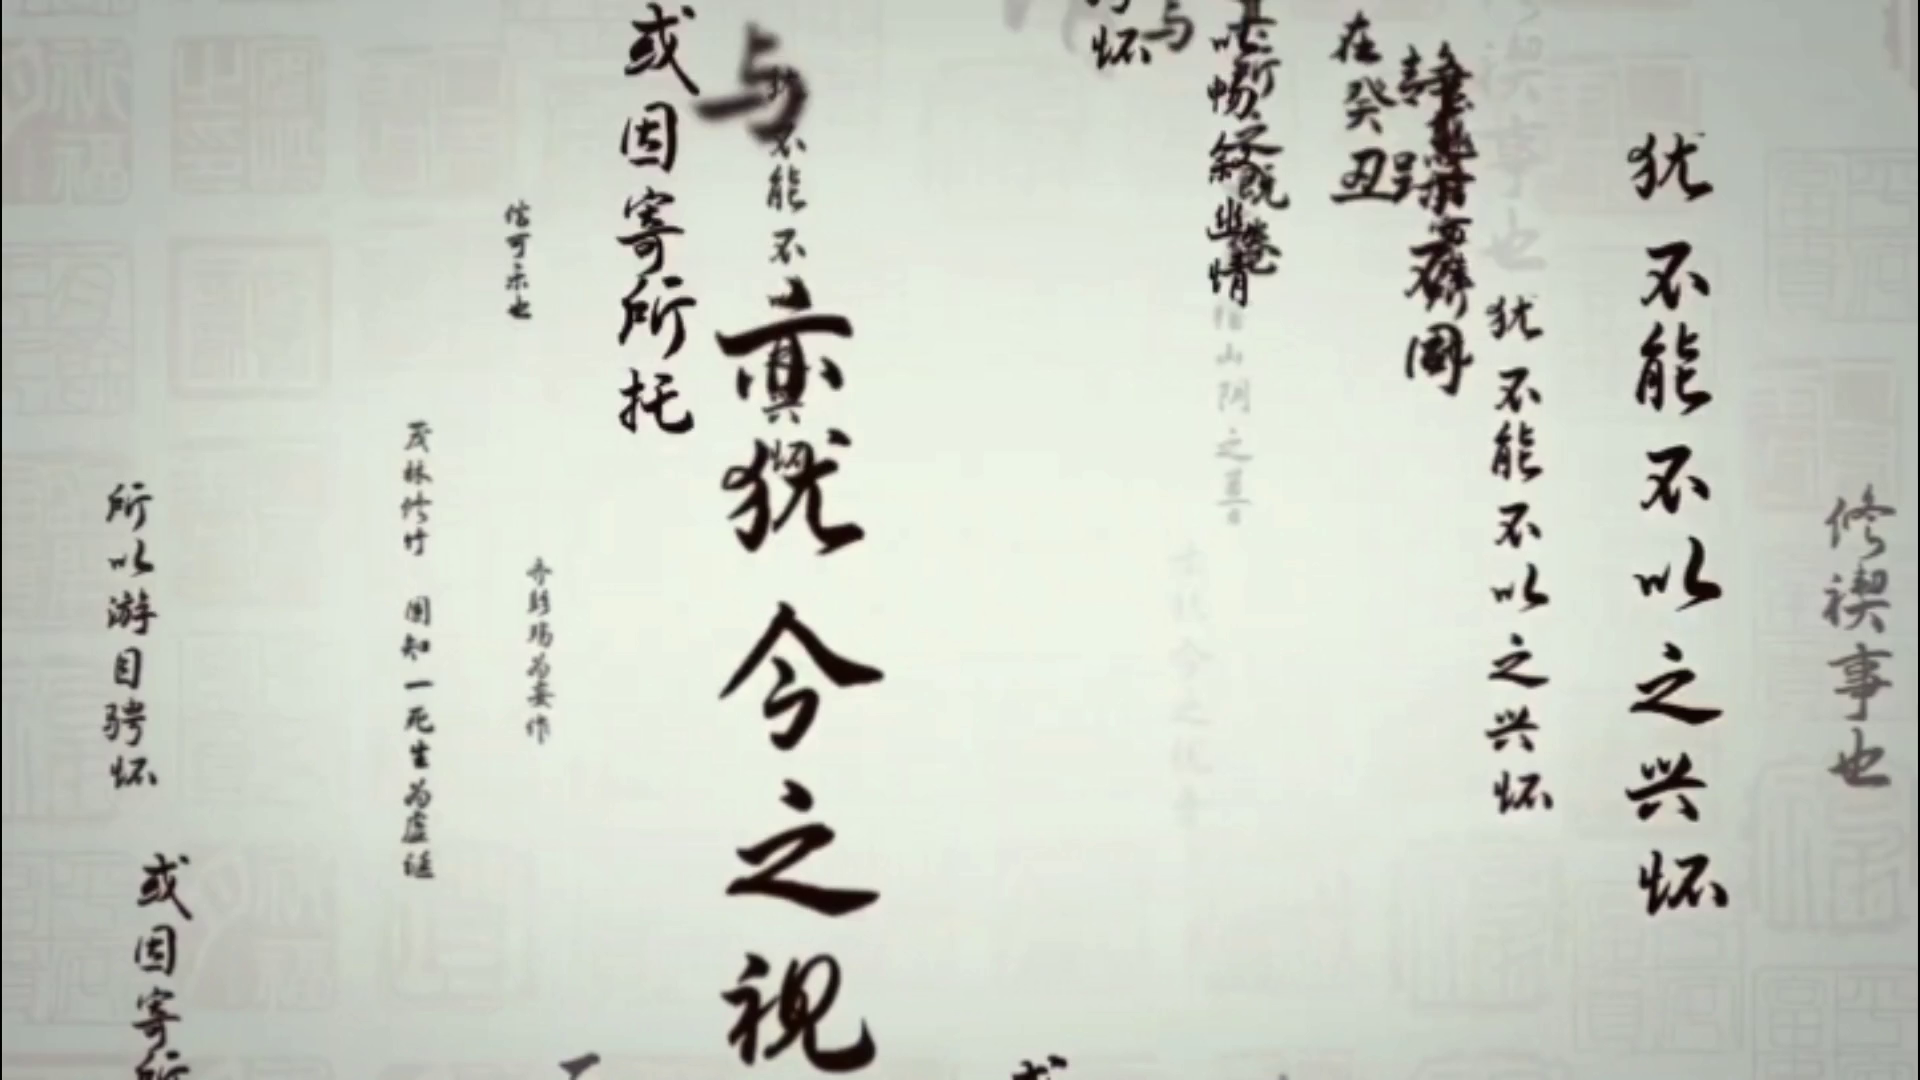 修禊事也
犹不能不以之兴怀
犹不能不以之兴怀
修禊事也
在癸丑
畅叙幽情
山阴之
今之视昔
怀
与
亦犹今之视
与
不能不
或因寄所托
信可乐也
齐彭殇为妄作
茂林修竹
固知一死生为虚诞
或因寄所
所以游目骋怀